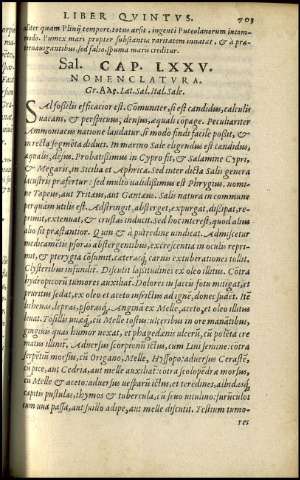 LIBER QVINTVS. 703
aliter quam Plinij tempore, totus arsit, ingenti Puteolanorum incom-
modo. Pumex mari propter substantiæ raritatem innatat, & à præ-
ternauigantibus, sed falso, spuma maris creditur.
Sal. CAP. LXXV.
NOMENCLATVRA.
Gr. Ἅλς. Lat. Sal. Ital. Sale.
SAl fossilis efficacior est. Communiter, si est candidus, calculis
uacans, & perspicuus, densus, æquali copage. Peculiariter
Ammoniacæ natione laudatur, si modo findi facile possit, &
in recta segmēta diduci. In marino Sale eligendus est candidus,
æqualis, densus. Probatissimus in Cypro fit, & Salamine Cypri,
& Megaris, in Sicilia et Aphrica. Sed inter dicta Salis genera
lacustris præfertur: sed multo ualidissimus est Phrygius, nomi-
ne Tattæus, aut Tritæus, aut Gantæus. Salis natura in commune
perquam utilis est. Adstringit, abstergit, expurgat, discipat, re-
primit, extenuat, & crustas inducit. Sed hoc interest, quod alius
alio fit præstantior. Quin & à putredine uindicat. Admiscetur
medicamētis psoras abstergentibus, excrescentia in oculis repri-
mit, & pterygia cōsumit, cæteraq; carnis extuberationes tollit.
Clysteribus infunditur. Discutit lassitudines ex oleo illitus. Cōtra
hydropicorū tumores auxiliatur. Dolores in saccis fotu mitigat, et
pruritus sedat, ex oleo et aceto infrictus ad ignē, donec sudet. Itē
lichenas, lepras, psorasq;. Anginæ ex Melle, aceto, et oleo illitus
iuuat. Tosillis uuæq; cū Melle tostus: ulceribus in ore manātibus,
gingiuis quas humor uexat, et phagedenis ulcerū, cū polēta cre-
matus illinit. Aduersus scorpionū ictus, cum Lini semine: cōtra
serpētiū morsus, cū Origano, Melle, Hyssopo: aduersus Cerastē,
cū pice, aut Cedria, aut melle auxiliat: cōtra scolopēdræ morsus,
cū Melle & aceto: aduersus uesparū ictus, et teredines, albidasq;
capitis pustulas, thymos & tubercula, cū seuo uitulino: furūculos
cum uua passa, aut suillo adipe, aut melle discutit. Testium tumo-
res